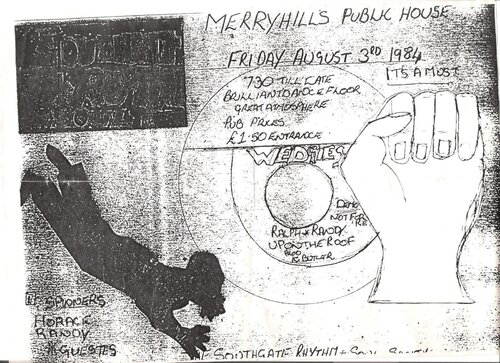 MERRYHILLS PUBLIC HOUSE
FRIDAY AUGUST 3RD 1984
ITS A MUST
730 TILL LATE
BRILLIANT DANCE FLOOR
GREAT ATMOSPHERE
PUB PRICES
£1.50 ENTRANCE
WEDIES
DEMO
NOT FOR
RALPH & RANDY
UPON THE ROOF
BUTLER
SPINNERS
HORACE
RANDY
& GUESTES
SOUTHGATE RHYTHM & SOUL